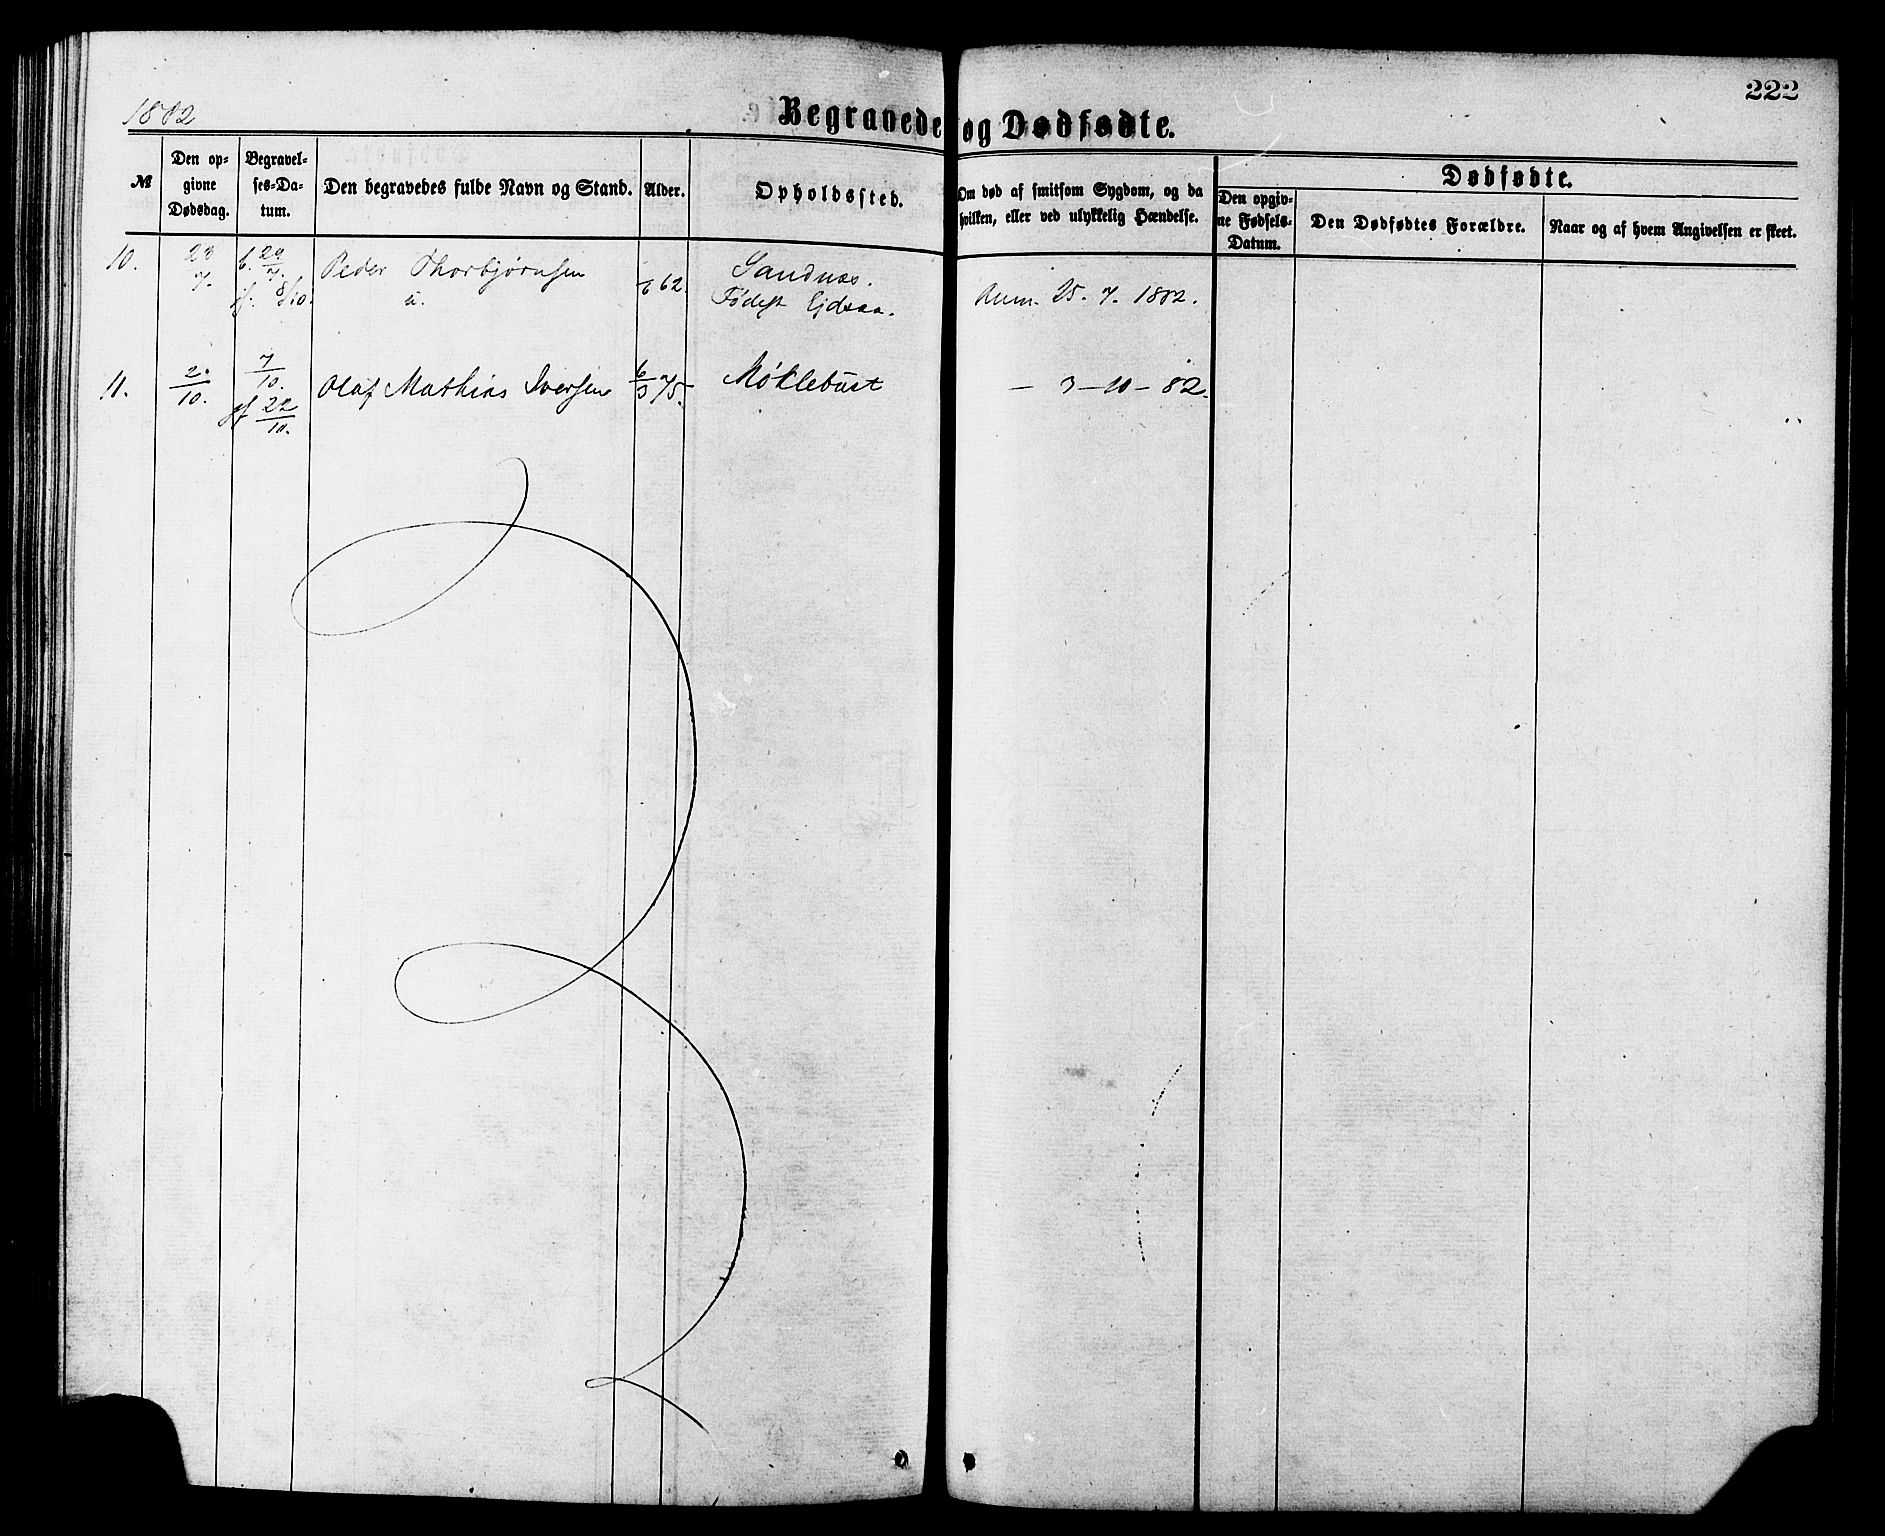 222
1882
Begravede og Dødfødte.
№
Den opgivne Dødsdag.
Begravelses-Datum.
Den begravedes fulde Navn og Stand.
Alder.
Opholdssted.
Om død af smitsom Sygdom, og da hvilken, eller ved ulykkelig Hændelse.
Dødfødte.
Den opgivne Fødsels-Datum.
Den Dødfødtes Forældre.
Naar og af hvem Angivelsen er skeet.
10. 23 29 Peder Thorbjørnsen 62 Sandnæs.
7. 7. 8/10. Fødest Ejdsaa. Anm. 25. 7. 1882.
11. 2 7 Olaf Mathias Iversen 6 75 Møklebust – 3 – 10 – 82.
10. 10. 3
jf 22
10.